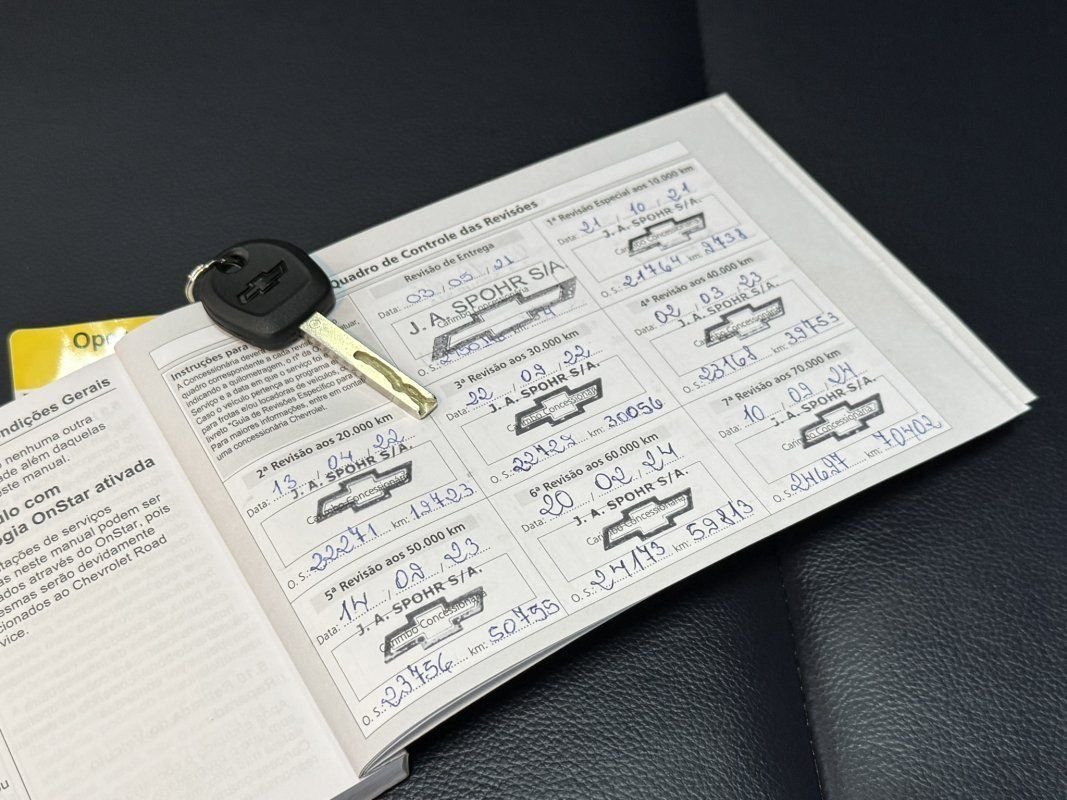 Ope
ndições Gerais
nenhuma outra
ade além daquelas
este manual.
ulo com
ogia OnStar ativada
stações de serviços
as neste manual podem ser
ados através do OnStar, pois
esmas serão devidamente
cionados ao Chevrolet Road
vice.
Quadro de Controle das Revisões
Instruções para
A Concessionária deverá
quadro correspondente a cada
indicando a quilometragem, o nº da O
Serviço e a data em que o serviço foi
Caso o veículo pertença ao programa
para frotas e/ou locadoras de veículos,
livreto "Guia de Revisões Específico para
Para maiores informações, entre em
uma concessionária Chevrolet.
Revisão de Entrega
Data: 03 / 05 / 21
J. A. SPOHR S/A
Carimbo Concessionária
1ª Revisão Especial aos 10.000 km
Data: 21 / 10 / 21
J. A. SPOHR S/A.
Carimbo Concessionária
O. S.: 21764 km: 9738
2ª Revisão aos 20.000 km
Data: 13 / 04 / 22
J. A. SPOHR S/A.
Carimbo Concessionária
O. S.: 22271 km: 19723
3ª Revisão aos 30.000 km
Data: 22 / 09 / 22
J. A. SPOHR S/A.
Carimbo Concessionária
O. S.: 22727 km: 30056
4ª Revisão aos 40.000 km
Data: 02 / 03 / 23
J. A. SPOHR S/A.
Carimbo Concessionária
O. S.: 23168 km: 39753
5ª Revisão aos 50.000 km
Data: 14 / 09 / 23
J. A. SPOHR S/A.
Carimbo Concessionária
O. S.: 23756 km: 50755
6ª Revisão aos 60.000 km
Data: 20 / 02 / 24
J. A. SPOHR S/A.
Carimbo Concessionária
O. S.: 24173 km: 59813
7ª Revisão aos 70.000 km
Data: 10 / 09 / 24
J. A. SPOHR S/A.
Carimbo Concessionária
O. S.: 24697 km: 70402